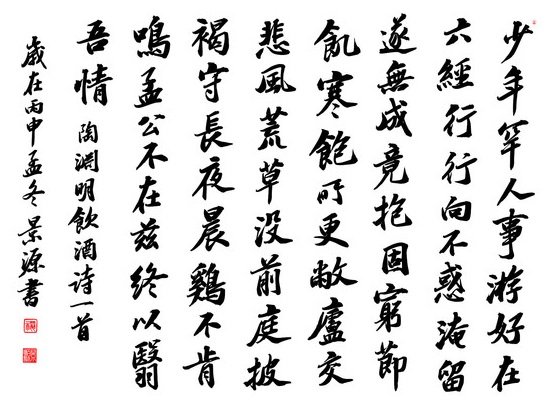 少年罕人事游好在
六經行行向不惑淹留
遂無成竟抱固窮節
飢寒飽所更敝廬交
悲風荒草没前庭披
褐守長夜晨鷄不肯
鳴孟公不在兹終以翳
吾情 陶淵明飲酒诗一首
歲在丙申孟冬景源書